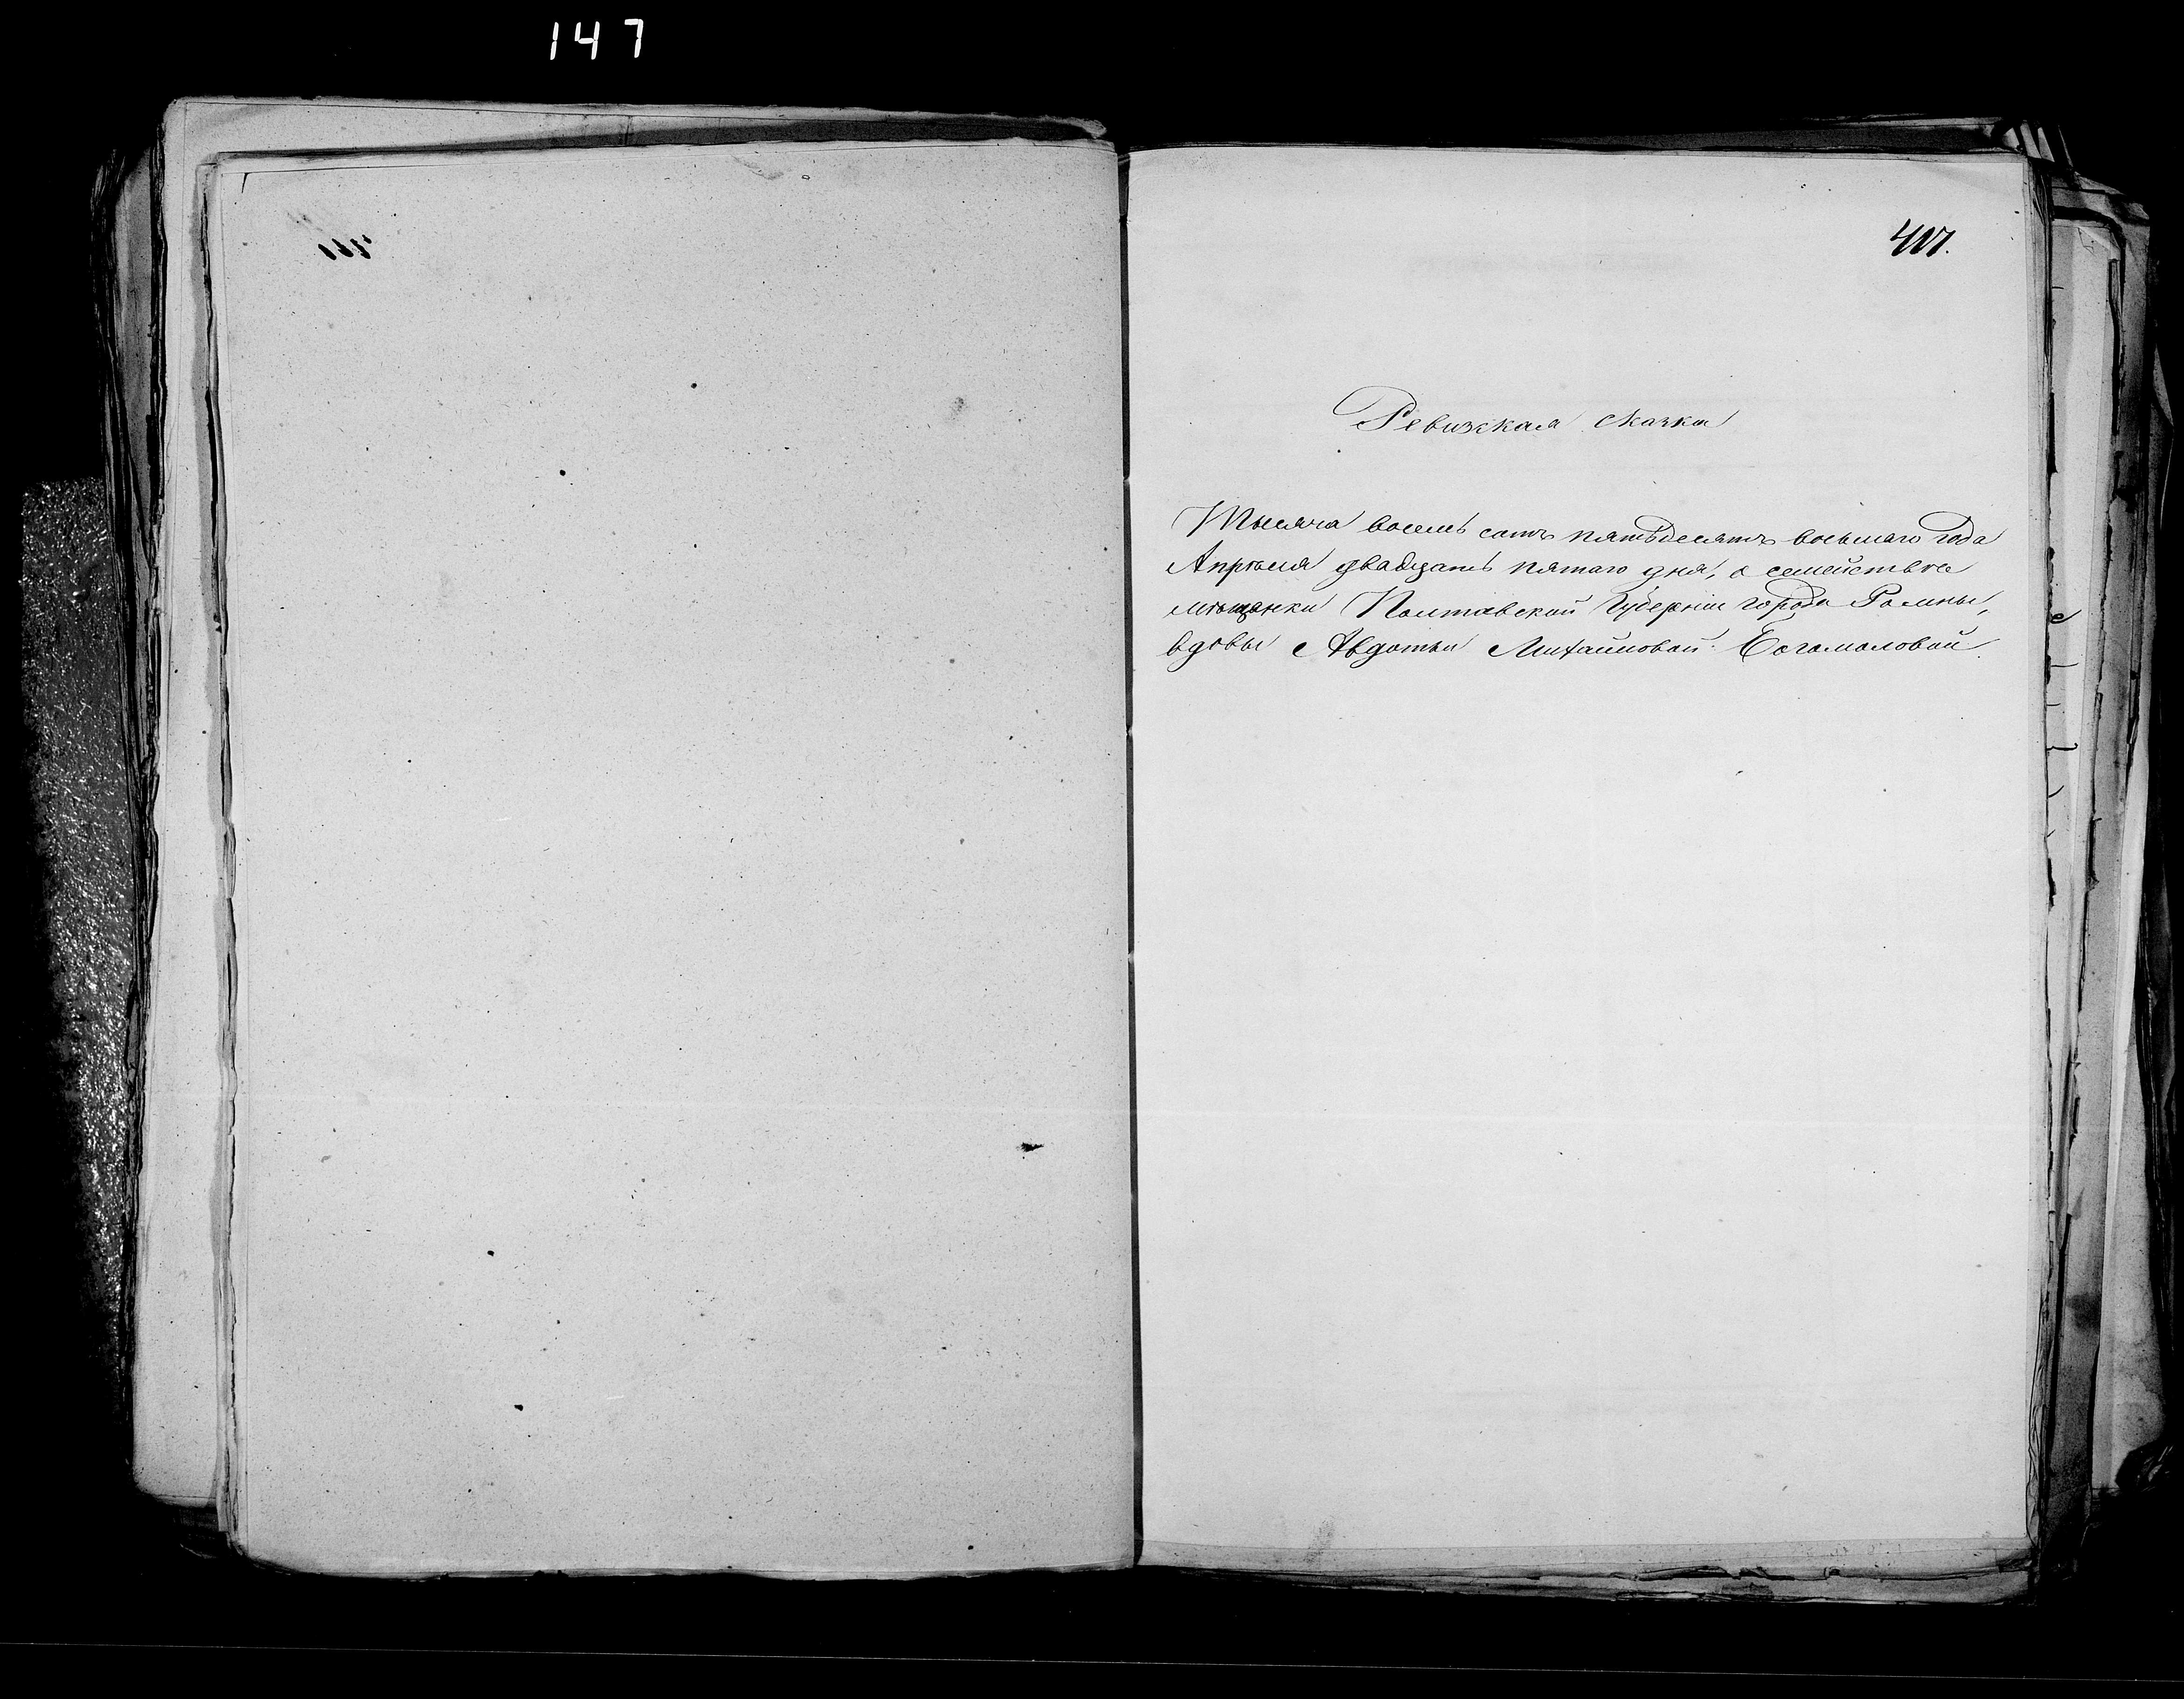 147
417.
Ревизская сказка
Тысяча восемь сотъ пятьдесятъ восьмаго года
Апрѣля двадцать пятаго дня, о семействѣ
мѣщанки Полтавской Губерніи города Ромны,
вдовы Авдотьи Михайловой Богомоловой.